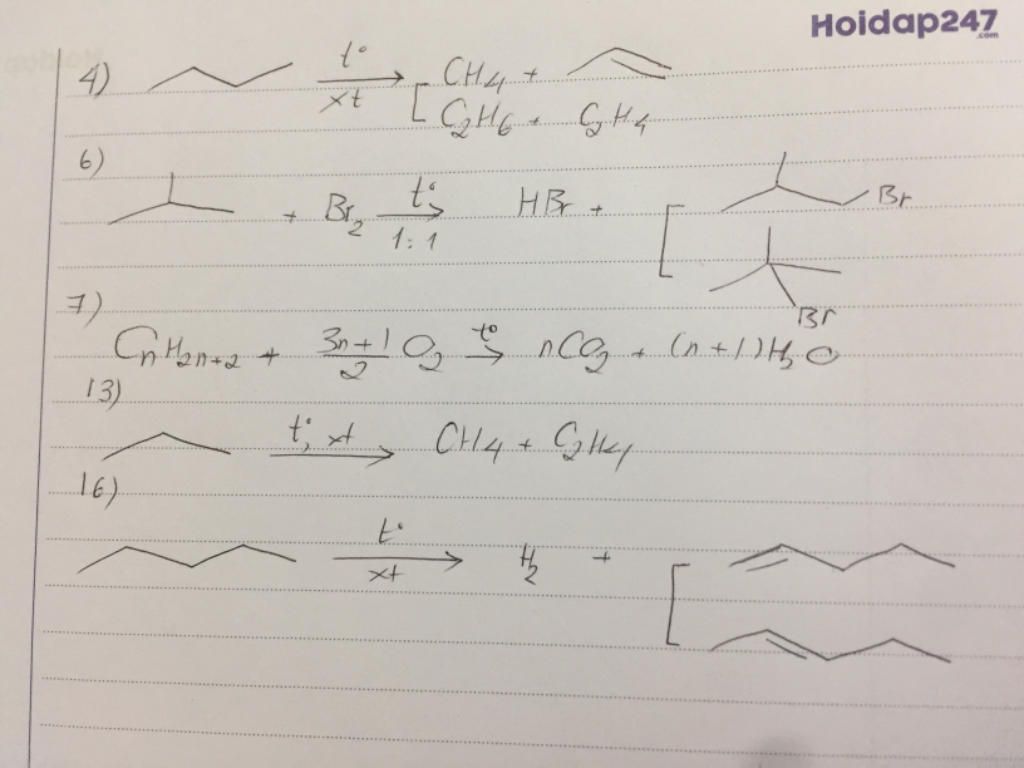 Hoidap247
.com
4) t° xt CH4 +
C2H6 + C2H4
6)
+ Br2 t° 1:1 HBr + Br
Br
7)
CnH2n+2 + 3n+1/2 O2 t° nCO2 + (n+1)H2O
13)
t°, xt CH4 + C2H4
16)
t° xt H2 +